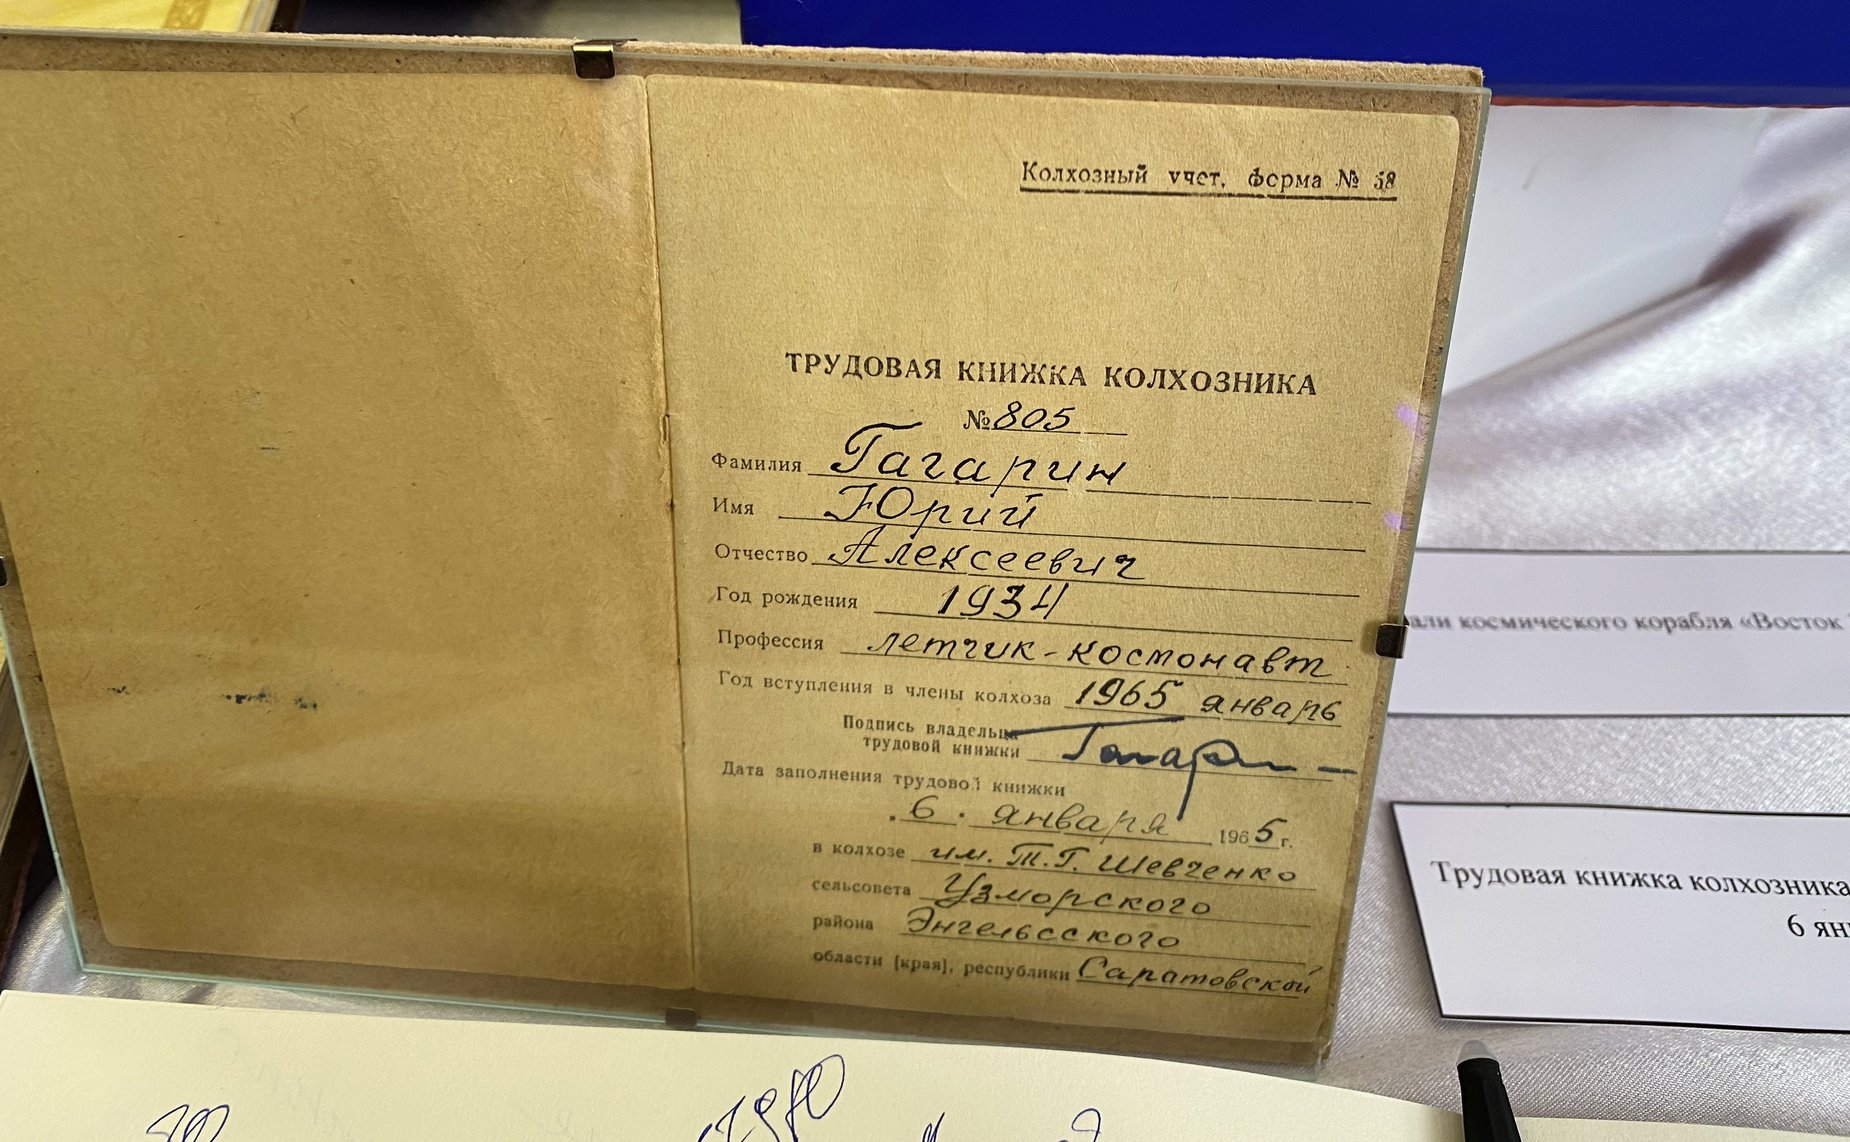 Колхозный учет, форма № 58
ТРУДОВАЯ КНИЖКА КОЛХОЗНИКА
№ 805
Фамилия Гагарин
Имя Юрий
Отчество Алексеевич
Год рождения 1934
Профессия летчик-космонавт
Год вступления в члены колхоза 1965 январь
Подпись владельца
трудовой книжки Гагарин
Дата заполнения трудовой книжки
"6" января 1965 г.
в колхозе им. Т.Г. Шевченко
сельсовета Узморского
района Энгельсского
области [края], республики Саратовской
космического корабля «Восток
Трудовая книжка колхозника
6